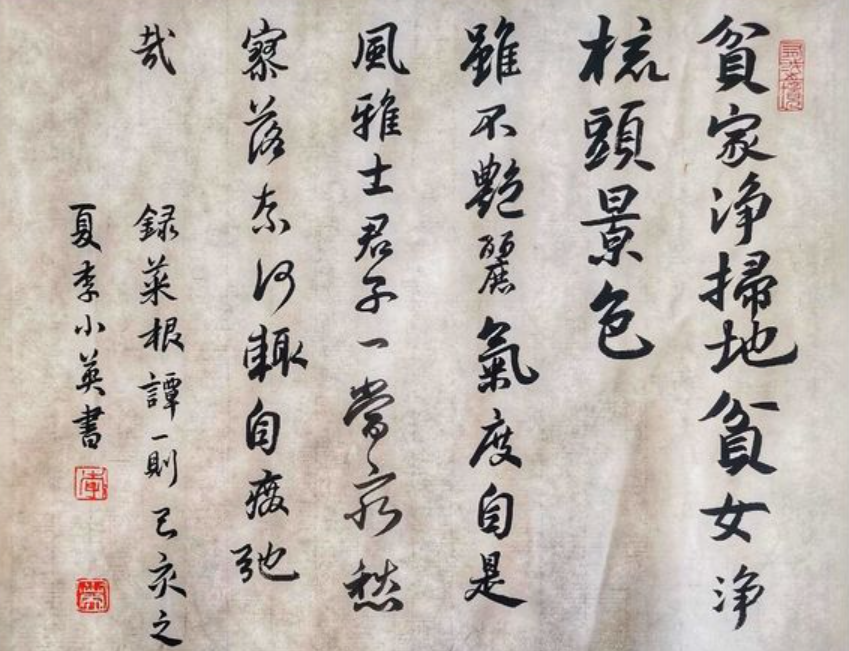 貧家浄掃地貧女浄
梳頭景色
雖不艷麗氣度自是
風雅士君子一當窮愁
寥落奈何輒自廢弛
哉 録菜根譚一則己亥之
夏李小英書
李
英